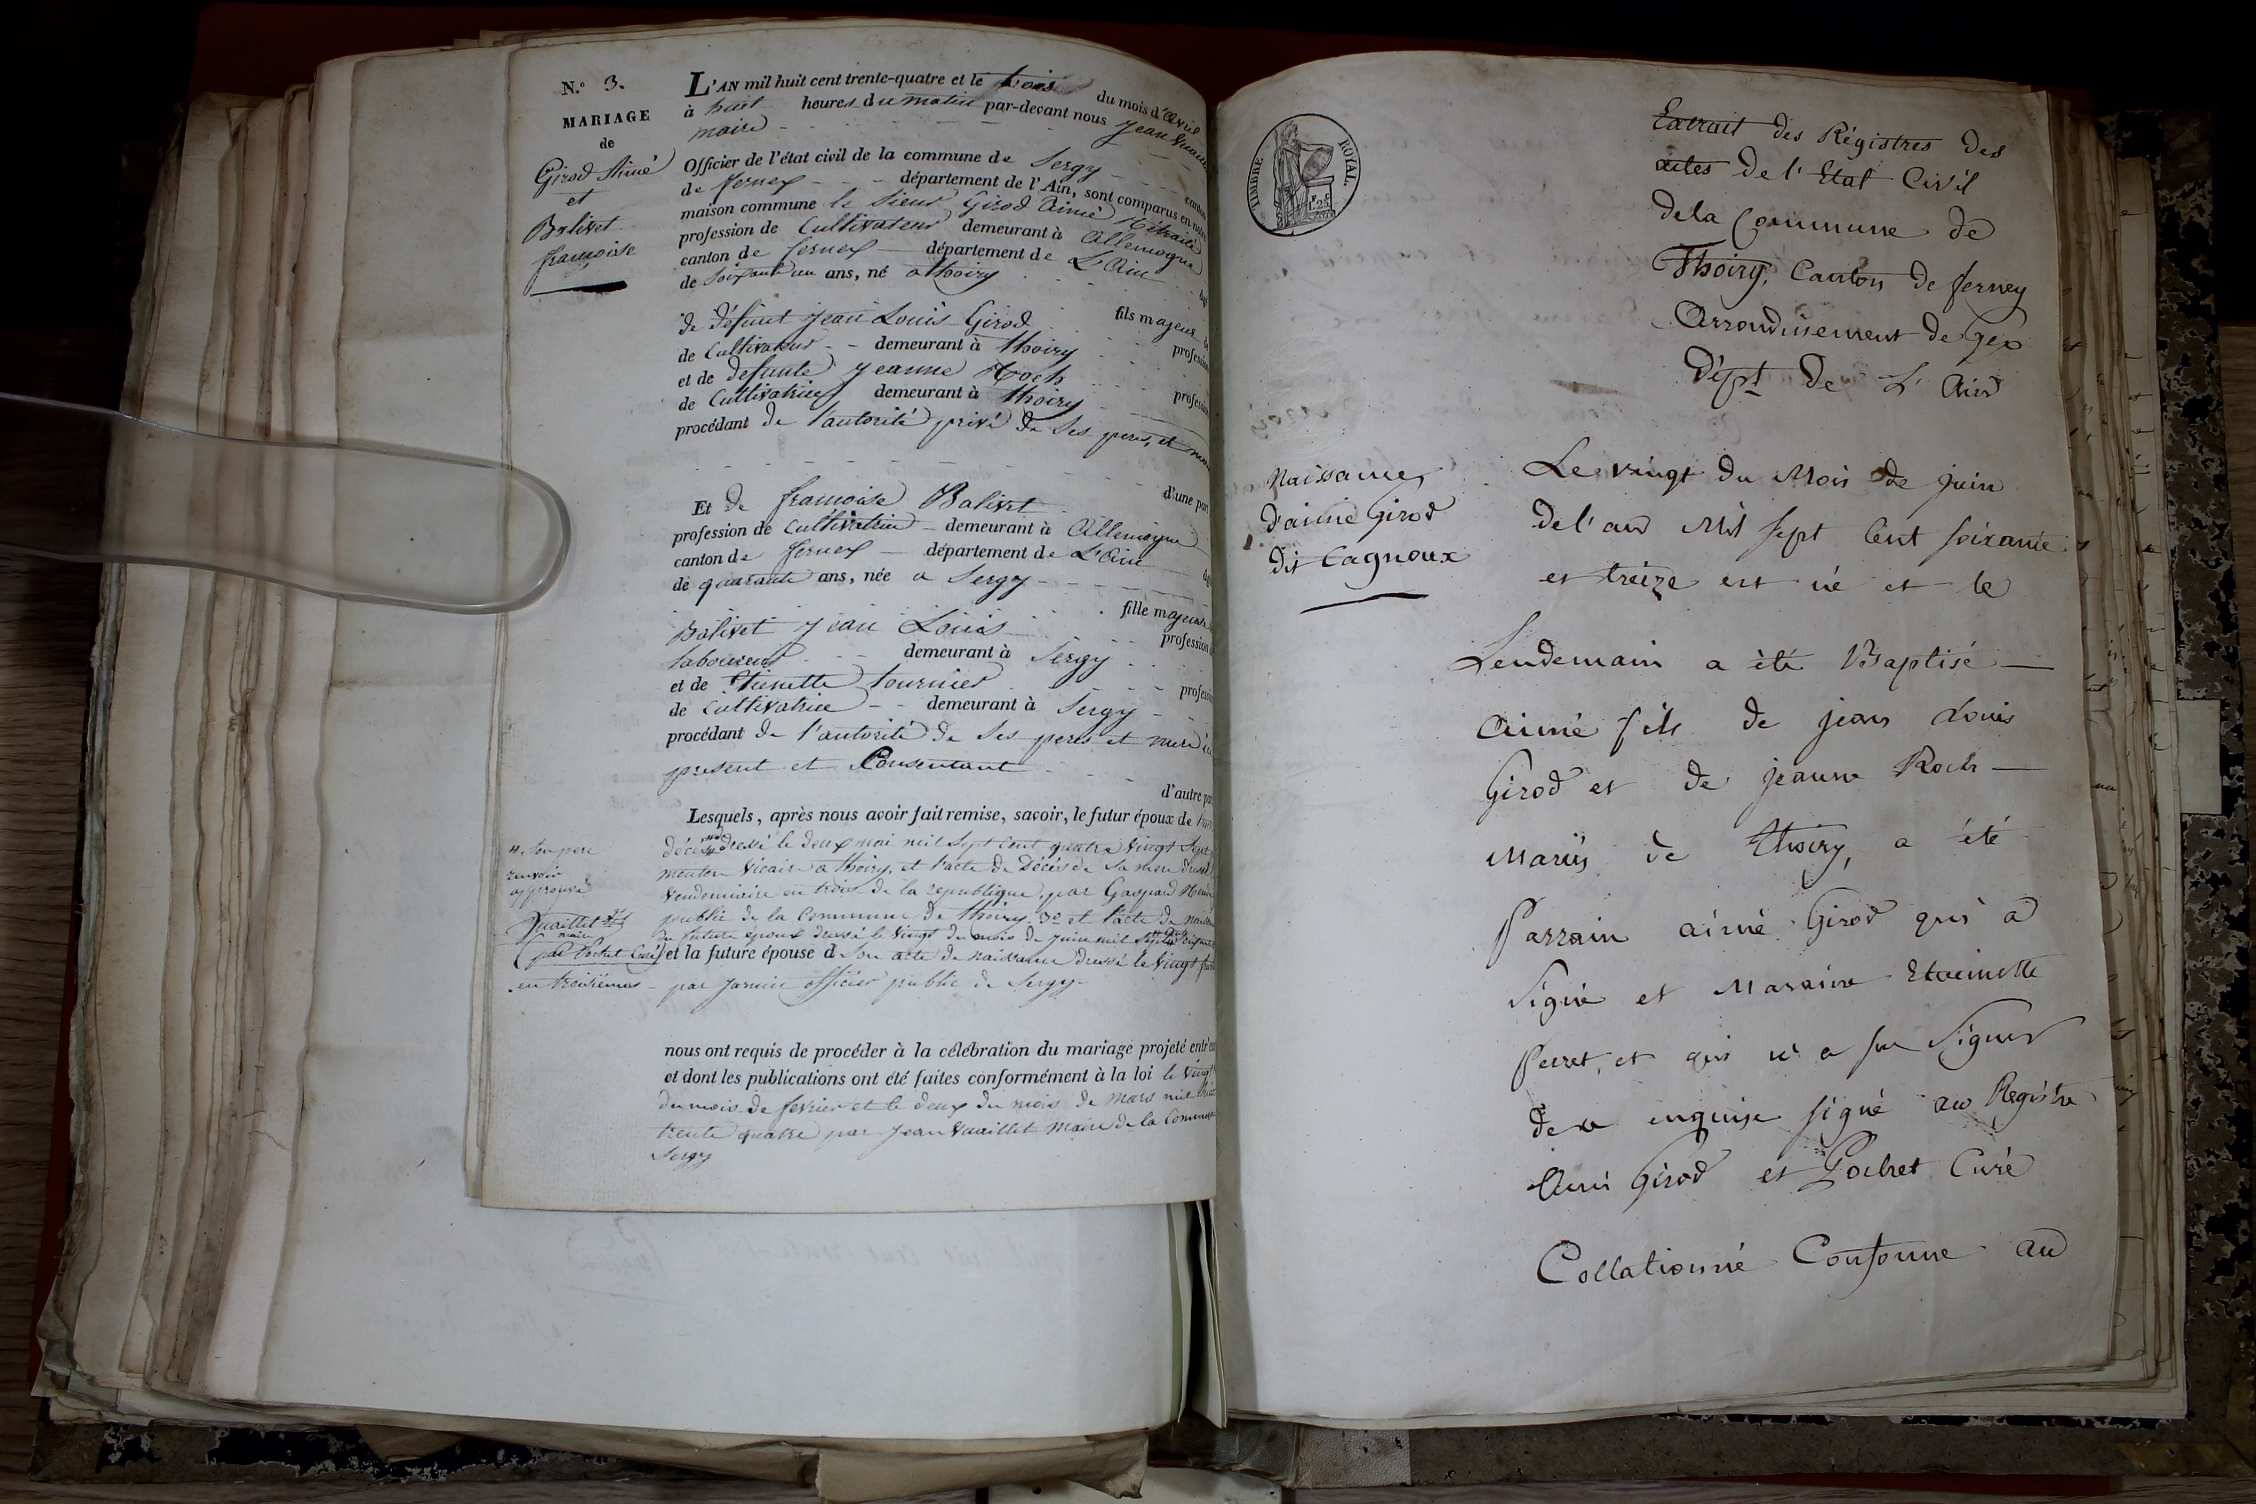 N.° 3.
MARIAGE
de
Girod Aimé
et
Balivet
françoise
L'AN mil huit cent trente-quatre et le trois du mois d'avril
à huit heures du matin par-devant nous Jean
maire
Officier de l'état civil de la commune de Sergy canton
de fernex département de l'Ain, sont comparus en notre
maison commune le sieur Girod Aimé Rétraité
profession de Cultivateur demeurant à Allemogne
canton de fernex département de L'Ain âgé
de Soixante un ans, né a thoiry
fils majeur
de défunt jean Louis Girod profession
de Cultivateur demeurant à thoiry
et de defunte jeanne Roch profession
de Cultivatrice demeurant à thoiry
procédant de l'autorité privé de ses peres et mere
d'une part
Et de françoise Balivet
profession de cultivatrice demeurant à Allemogne
canton de fernex département de L'Ain âgé
de quarante ans, née a Sergy
fille majeure
Balivet jean Louis profession
laboureur demeurant à Sergy
et de tienette tournier profession
de cultivatrice demeurant à Sergy
procédant de l'autorité de ses peres et mere
present et Consentant
d'autre part
Lesquels, après nous avoir fait remise, savoir, le futur époux de
décès dressé le deux mai mil sept cent quatre vingt sept
vicaire a thoiry, et l'acte de Décès de sa mere
vendemiaire an trois de la republique, par Gaspard
public de la Commune de thoiry et l'acte de
du future epoux dressé le vingt du mois de juin mil sept
et la future épouse d son acte de naissance dressé le vingt
par officier public de Sergy
" son pere
renvoir
approuvé
Vuaillet
maire
(par Pochet Curé)
nous ont requis de procéder à la célébration du mariage projeté entr'eux
et dont les publications ont été faites conformément à la loi le vingt
du mois de fevrier et le deux du mois de mars mil
trente quatre par jean Vuaillet maire de la Commune
Sergy
TIMBRE ROYAL
Extrait des Régistres des
actes de l'Etat Civil
dela Commune de
Thoiry, Canton de ferney
Arrondissement de gex
Dépt de L'Ain
Naissance
d'aimé Girod
dit Cagnoux
Le vingt du Mois de juin
del'an Mil sept Cent soixante
et treize est né et le
Lendemain a été Baptisé
aimé fils de jean Louis
Girod et de jeanne Roch
Mariés de Thoiry, a été
Parrain aimé Girod qui a
Signé et Maraine
Perret, et qui n'a su Signer
de ce enquise signé au Registre
Aimé Girod et Pochet Curé
Collationné Conforme au